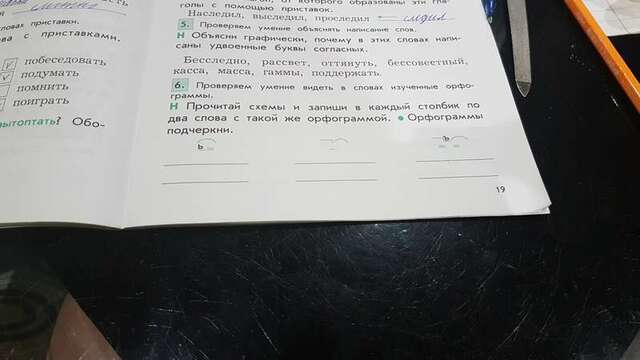 сленной
словах приставки.
ва с приставками,
побеседовать
подумать
помнить
поиграть
вытоптать? Обо-
ан, от которого образованы эти гла-
голы с помощью приставок.
Наследил, выследил, проследил ← следил
5. Проверяем умение объяснять написание слов.
Н Объясни графически, почему в этих словах напи-
саны удвоенные буквы согласных.
Бесследно, рассвет, оттянуть, бессовестный,
касса, масса, гаммы, поддержать.
6. Проверяем умение видеть в словах изученные орфо-
граммы.
Н Прочитай схемы и запиши в каждый столбик по
два слова с такой же орфограммой. • Орфограммы
подчеркни.
ь
ь
19